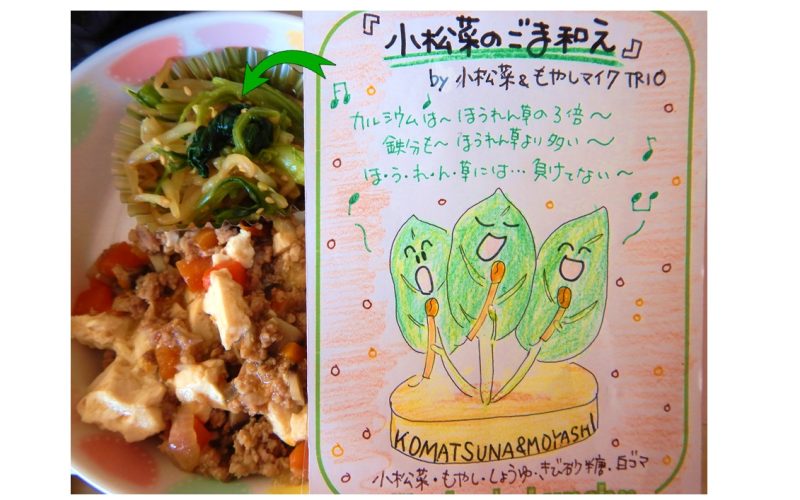 『小松菜のごま和え』
by 小松菜&もやしマイク TRIO
カルシウムは〜ほうれん草の3倍〜
鉄分も〜ほうれん草より多い〜
ほ・う・れ・ん・草には…負けてない〜
KOMATSUNA&MOYASHI
小松菜・もやし・しょうゆ・きび砂糖・白ゴマ